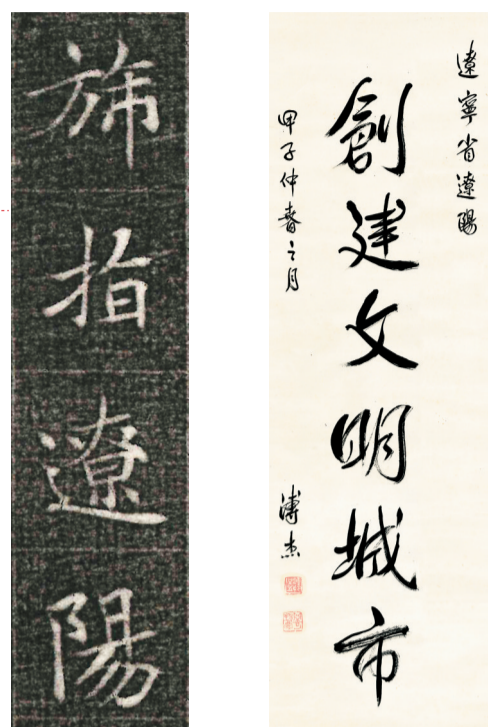 旆指遼陽
遼寧省遼陽
創建文明城市
甲子仲春之月
溥杰